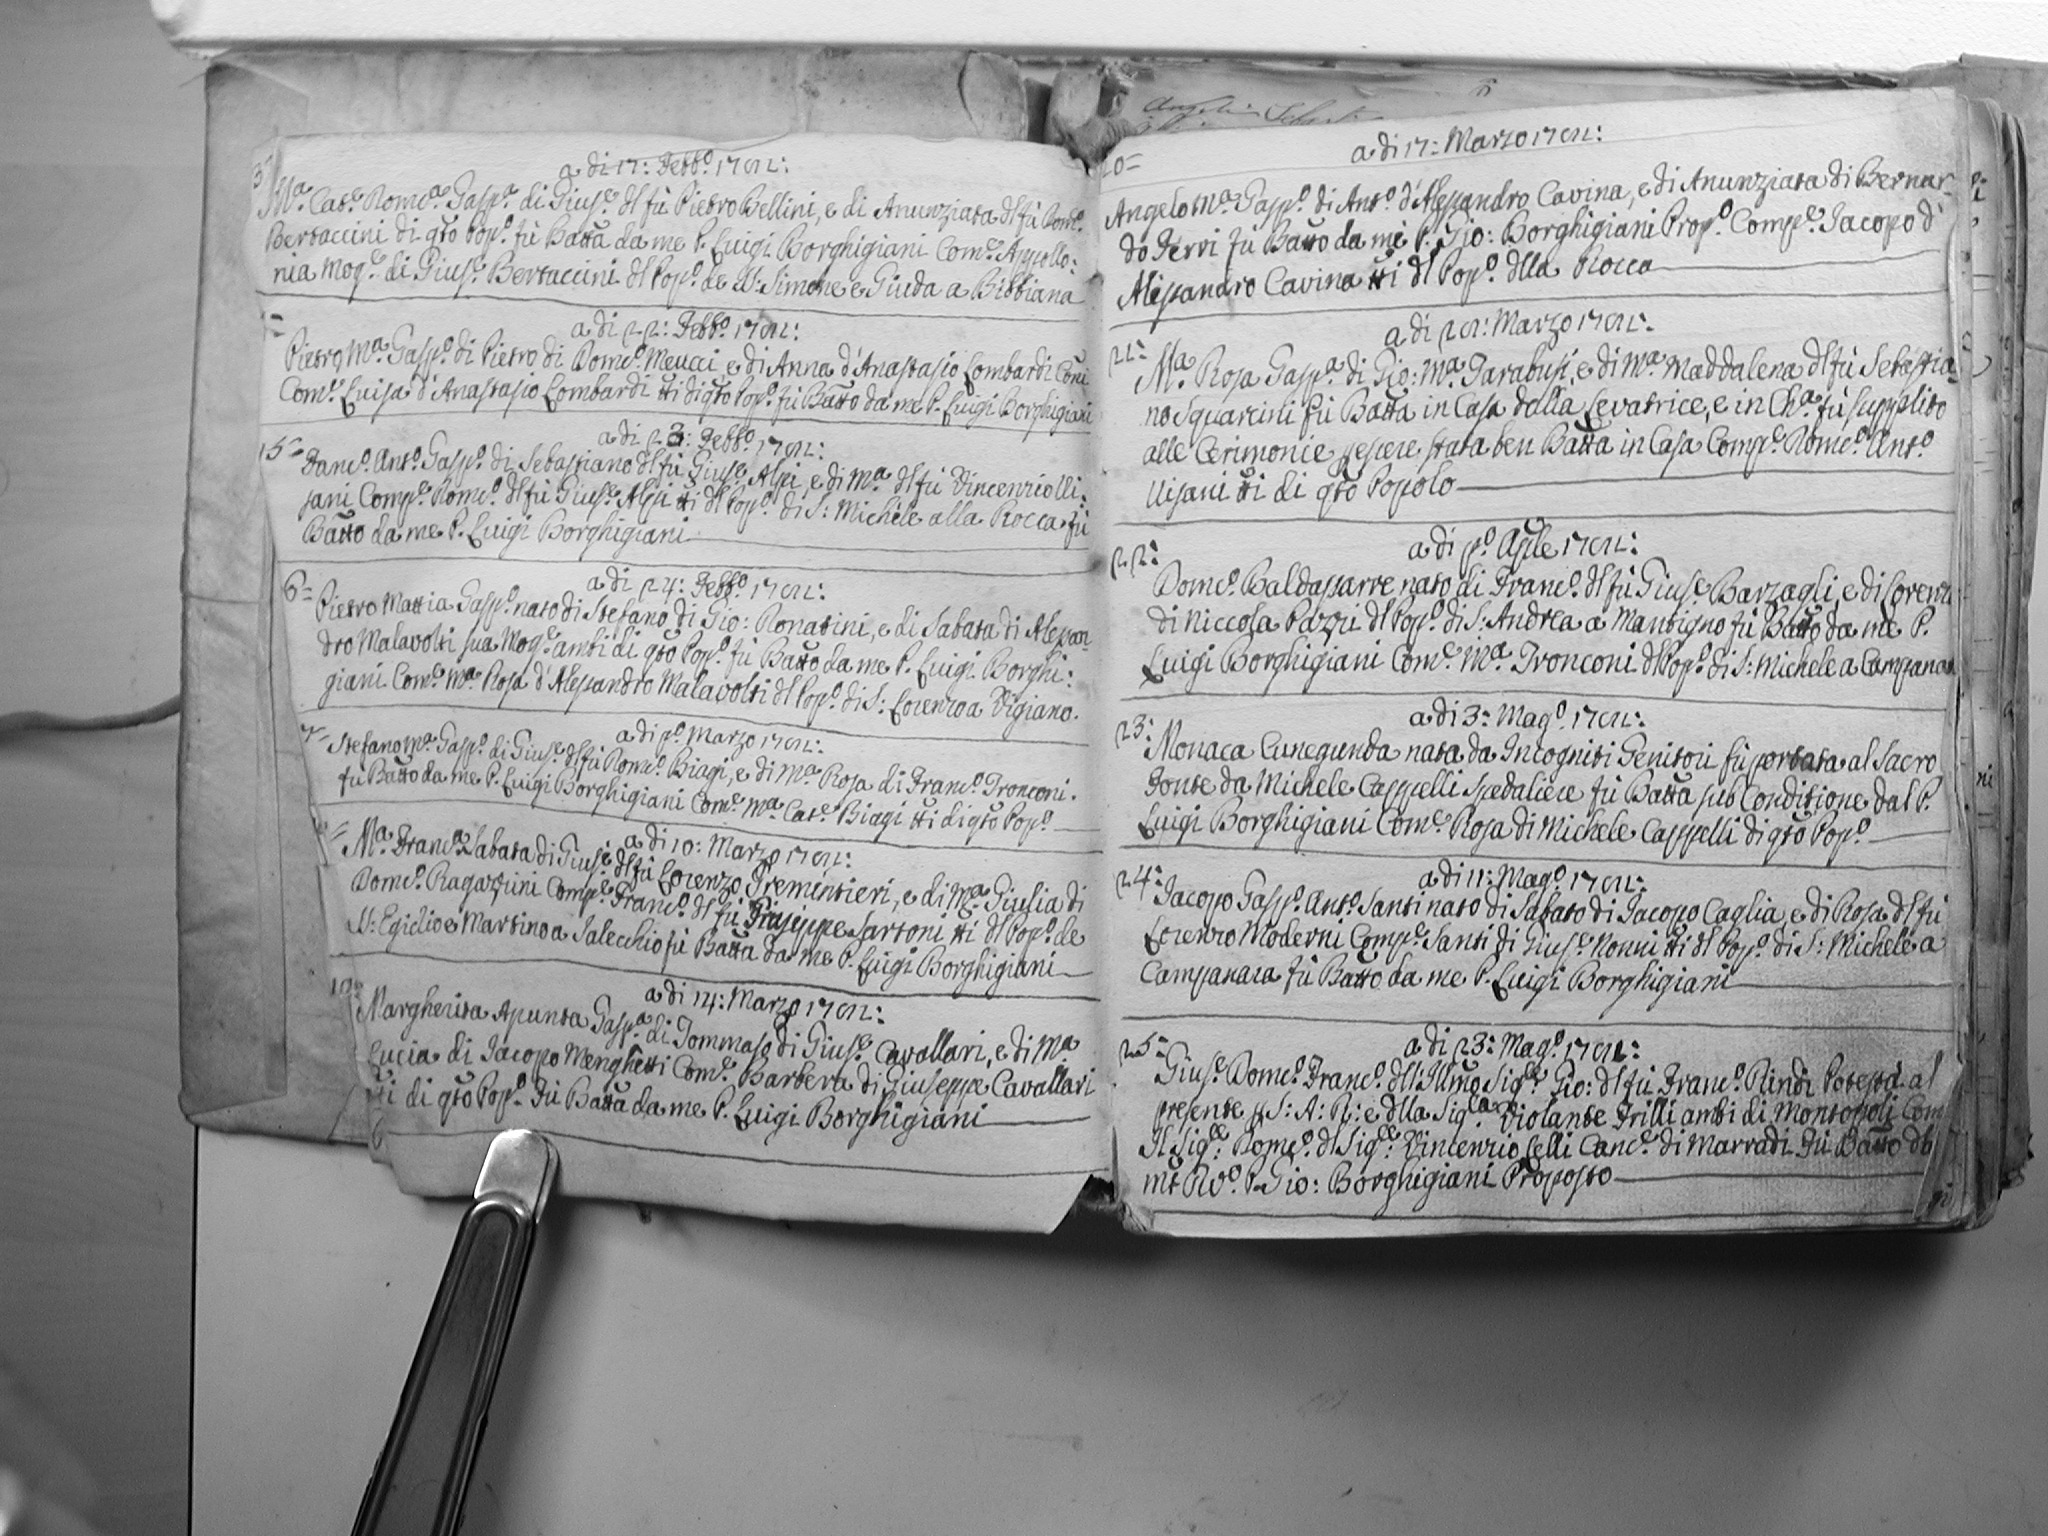 3
a di 17: Febb.o 17
M.a Cat.a Dom.ca Gasp.a di Gius.e dl fù Pietro Bellini, e di Anunziata dl fù Dom.co
Bertaccini di qto Pop.o fù Batta da me P. Luigi Borghigiani Com.e Appollo:
nia Mog.e di Gius.e Bertaccini dl Pop.o de SS: Simone e Giuda a Bibbiana
a di 22: Febb.o 17
Pietro M.a Gasp.o di Pietro di Dom.co Meucci e di Anna d'Anastasio Lombardi Coñi
Com.e Luisa d'Anastasio Lombardi tti di qto Pop.o fù Batto da me P. Luigi Borghigiani
15=
a di 23: Febb.o 17
Franc.o Ant.o Gasp.o di Sebastiano dl fù Gius.e Alpi, e di M.a dl fù Vincenzio Vi:
sani Comp.e Dom.co dl fù Gius.e Alpi tti dl Pop.o di S: Michele alla Rocca fù
Batto da me P. Luigi Borghigiani
6=
a di 24: Febb.o 17
Pietro Mattia Gasp.o nato di Stefano di Gio: Donatini, e di Sabata di Alessan
dro Malavolti sua Mog.e ambi di qto Pop.o fù Batto da me P. Luigi Borghi:
giani Com.e M.a Rosa d'Alessandro Malavolti dl Pop.o di S: Lorenzo a Vigiano.
7=
a di p.o Marzo 17
Stefano M.a Gasp.o di Gius.e dl fù Dom.co Biagi, e di M.a Rosa di Franc.o Tronconi.
fù Batto da me P. Luigi Borghigiani Com.e M.a Cat.a Biagi tti di qto Pop.o
a di 10: Marzo 17
M.a Franc.a Sabata di Gius.e dl fù Lorenzo Trementieri, e di M.a Giulia di
Dom.co Ragazzini Comp.e Franc.o dl fù Giuseppe Sartoni tti dl Pop.o de
SS: Egidio e Martino a Salecchio fù Batta da me P. Luigi Borghigiani
a di 14: Marzo 17
Margherita Apunta Gasp.a di Tommaso di Gius.e Cavallari, e di M.a
Lucia di Jacopo Menghetti Com.e Barbera di Giuseppe Cavallari
tti di qto Pop.o Fù Batta da me P. Luigi Borghigiani
20=
a di 17: Marzo 17
Angelo M.a Gasp.o di Ant.o d'Alessandro Cavina, e di Anunziata di Bernar-
do Fervi fù Batto da me P. Gio: Borghigiani Prop.o Comp.e Jacopo d'
Alessandro Cavina tti dl Pop.o dlla Rocca
21:
Marzo 17
M.a Rosa Gasp.a di Gio: M.a Tarabusi, e di M.a Maddalena dl fù Sebastia=
no Squarcini fù Batta in Casa dalla Levatrice, e in Ch.a fù supplito
alle Cerimonie p essere stata ben Batta in Casa Comp.e Dom.co Ant.o
Visani tti di qto Popolo
22:
a di p.o Aple 17
Dom.co Baldassarre nato di Franc.o dl fù Gius.e Barzagli, e di Lorenz
di Niccola Pazzi dl Pop.o di S: Andrea a Mantigno fù Batto da me P.
Luigi Borghigiani Com.e M.a Tronconi dl Pop.o di S: Michele a Campanar
23:
a di 3: Mag.o 17
Monaca Cunegunda nata da Incogniti Genitori fù portata al Sacro
Fonte da Michele Cappelli Spedaliere fù Batta sub Conditione dal P.
Luigi Borghigiani Com.e Rosa di Michele Cappelli di qto Pop.o
24:
a di 11: Mag.o 17
Jacopo Gasp.o Ant.o Santi nato di Sabato di Jacopo Caglia, e di Rosa dl fù
Lorenzo Moderni Comp.e Santi di Gius.e Nonni tti dl Pop.o di S: Michele a
Campanara fù Batto da me P. Luigi Borghigiani
25:
a di 23: Mag.o 17
Gius.e Dom.co Franc.o dll'Illmo Sig.re Gio: dl fù Franc.o Rindi Potestà al
presente p S: A: R: e dlla Sig.ra Violante Frilli ambi di Montopoli Com
Il Sig.re Dom.co dl Sig.re Vincenzio Celli Canc.e di Marradi Fù Batto dal
mt Rdo P. Gio: Borghigiani Proposto